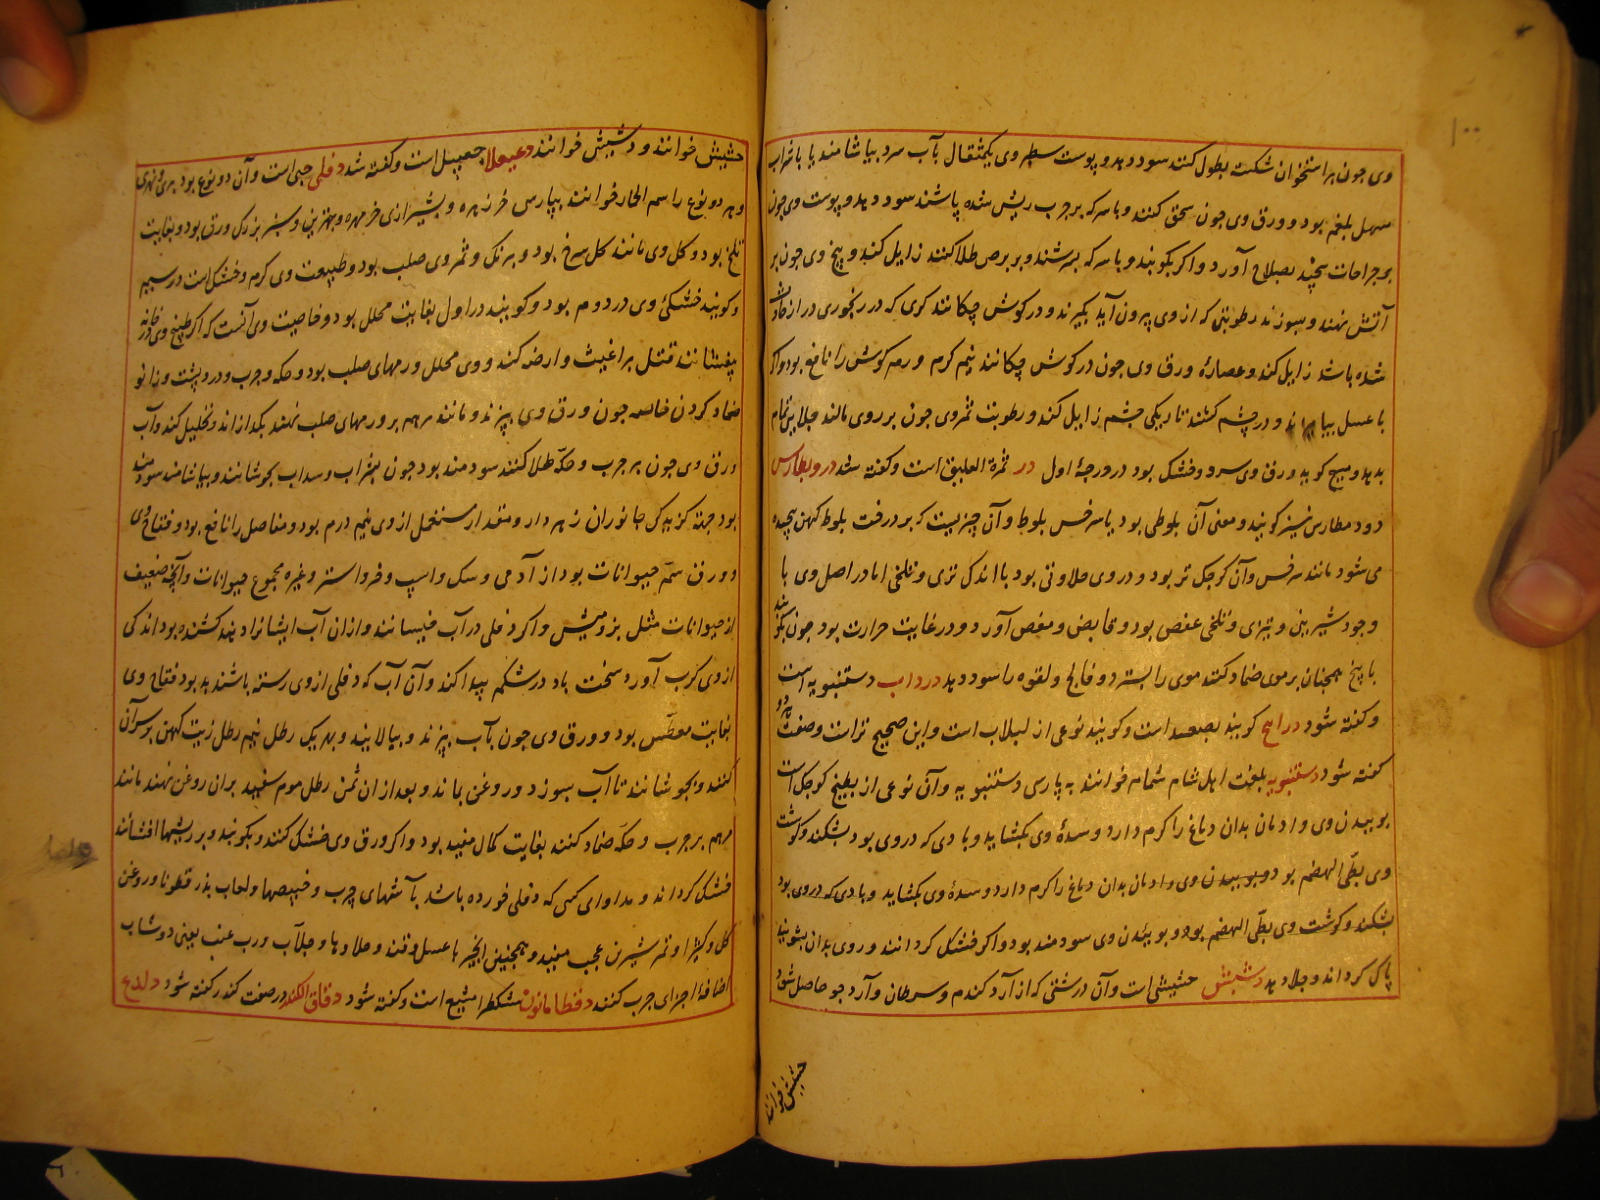 ۱۰۰
وی چون بر استخوان شکسته بطول کنند سود دهد و پوست سطبر وی یکمثقال بآب سرد بیاشامند یا با شراب
سهل بلغم بود و ورق وی چون سحق کنند و با سرکه بر جرب ریش شده پاشند سود دهد و پوست وی چون
بر جراحات پیچند بصلاح آورد و اگر بکوبند و با سرکه بسرشند و بر برص طلا کنند زایل کند و بیخ وی چون بر
آتش نهند و بسوزند رطوبتی که از وی بیرون آید بگیرند و در گوش چکانند کری که در رنجوری دراز حادث
شده باشد زایل کند و عصارهٔ ورق وی چون در گوش چکانند نیم گرم ورم گوش را نافع بود و اگر
با عسل بیامیزند و در چشم کشند تاریکی چشم زایل کند و رطوبت ثمر وی چون بر روی مالند جلایی تمام
بدهد و مسیح گوید ورق وی سرد و خشک بود در درجهٔ اول در ثمرة العلیق است و گفته شد دروبطارس
درود مطارس نیز گویند و معنی آن بلوطی بود یا سرخس بلوط و آن چیزیست که بر درخت بلوط کهن پیچیده
می شود مانند سرخس و آن کوچک تر بود و در وی حلاوتی بود با اندک تری و تلخی اما در اصل وی با
وجود شیرینی و تیزی و تلخی عفص بود و قابض و مغص آورد و در غایت حرارت بود چون بکوبند
با بیخ همچنان بر موی ضماد کنند موی را بسترد و فالج و لقوه را سود دهد درداب دستنبویه است
و گفته شود دراهج گویند است و گویند نوعی از لبلاب است و این صحیح تر است و صفت هر دو
گفته شود دستنبویه بلغت اهل شام شمام خوانند به پارسی دستنبویه و آن نوعی از بطیخ کوچک است
بوییدن وی و ادمان بدان دماغ را گرم دارد و سدهٔ وی بگشاید و بادی که در وی بود بشکند و گوشت
وی بطئ الهضم بود و بوییدن وی و ادمان بدان دماغ را گرم دارد و سدهٔ وی بگشاید و بادی که در وی بود
بشکند و گوشت وی بطئ الهضم بود و بوئیدن وی سودمند بود و اگر خشک گردانند و روی بدان بشویند
پاک گرداند و جلا دهد دشیش حشیشی است و آن درشتی که از آرد گندم و سرطان و آرد جو حاصل شود
حشیش خوانند
حشیش خوانند و دشیش خوانند دعیملا جعبیل است و گفته شد دفلی حبی است و آن دو نوع بود بری و نهری
و هر دو نوع را سم الحمار خوانند بپارسی خرزهره و بشیرازی خرمهره و بهترین وی سبز بزرگ ورق بود و بغایت
تلخ بود و گل وی مانند گل سرخ بود و برنگ و ثمر وی صلب بود و طبیعت وی گرم و خشکست در سیم
و گویند خشکی وی در دوم بود و گویند در اول بغایت محلل بود و خاصیت وی آنست که اگر طبیخ وی در خانه
بیفشانند قتل براغیث و ارضه کند و وی محلل ورمهای صلب بود و حکه و جرب و درد پشت و زانو
ضماد کردن خاصه چون ورق وی بپزند و مانند مرهم بر ورمهای صلب نهند بگدازاند و تحلیل کند و آب
ورق وی چون بر جرب و حکه طلا کنند سودمند بود چون بشراب و سداب بجوشانند و بیاشامند سودمند
بود جهة گزیدگی جانوران زهردار و مقدار مستعمل از وی نیم درم بود و مفاصل را نافع بود و فقاح وی
و ورق سم حیوانات بود از آدمی و سگ و اسپ و خر و استر و غیره مجموع حیوانات و آنچه ضعیف
از حیوانات مثل بز و میش و اگر دفلی در آب خیسانند و از آن آب ایشانرا دهند کشنده بود اندکی
از وی کرب آورد و سخت باد در شکم پیدا کند و آن آب که دفلی از وی رسته باشد بد بود فقاح وی
بغایت معطس بود و ورق وی چون بآب بپزند و بپالایند و بهر یک رطل نیم رطل زیت کهن بر سر آن
کنند و بجوشانند تا آب بسوزد و روغن بماند و بعد از آن ثمن رطل موم سفید بران روغن نهند مانند
مرهم بر جرب و حکه ضماد کنند بغایت کمال مفید بود و اگر ورق وی خشک کنند و بکوبند و بر ریشها افشانند
خشک گرداند و مداوای کسی که دفلی خورده باشد بآشهای چرب و خبیصها و لعاب بذر قطونا و روغن
گل و کثیرا و تمر شیرین عجب مفید و همچنین انجیر با عسل و قند و حلاوها و جلاب و رب عنب یعنی دوشاب
اضافهٔ اجزای چرب کنند دفطامانون مشکطرامشیع است و گفته شود دقاق الکندر در صفت کندر گفته شود دلدع